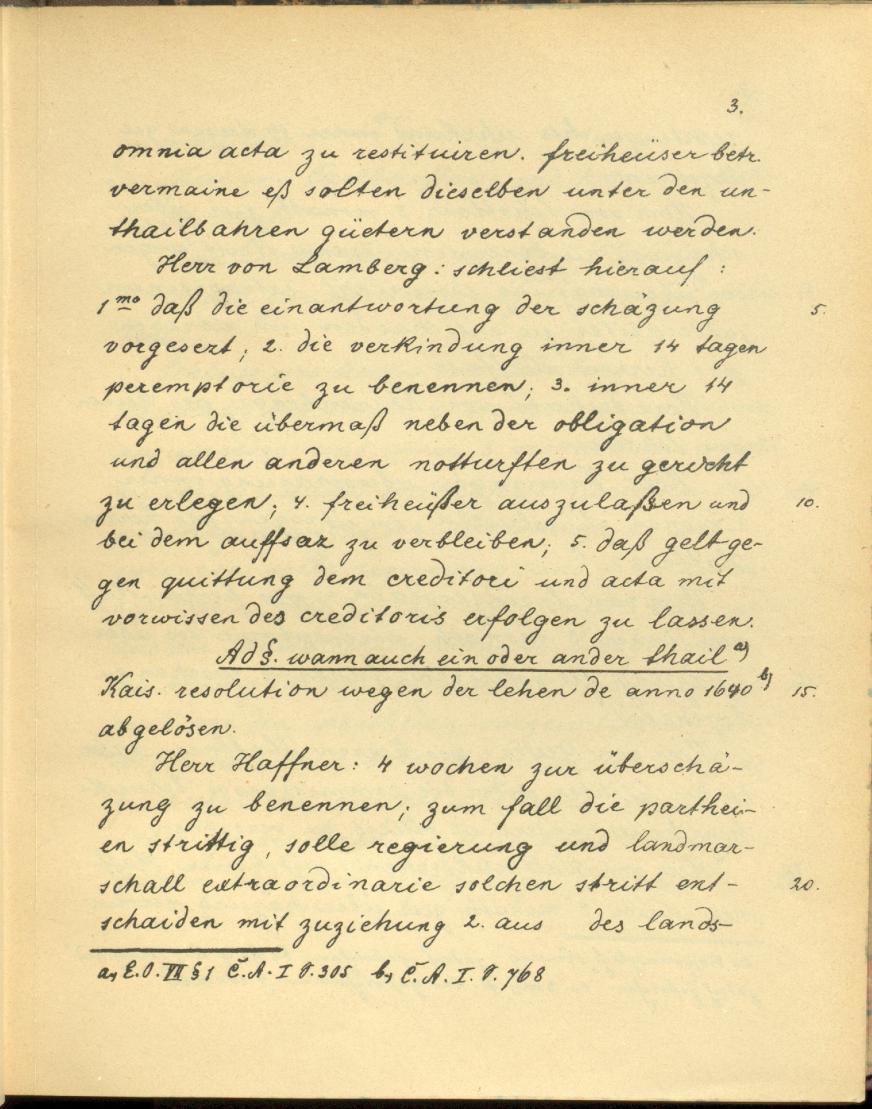 3.
omnia acta zu restituiren. freiheüser betr.
vermaine eß solten dieselben unter den un-
thailbahren güetern verstanden werden.
Herr von Lamberg: schliest hierauf:
1mo daß die einantwortung der schäzung 5.
vorgesert; 2. die verkindung inner 14 tagen
peremptorie zu benennen; 3. inner 14
tagen die übermaß neben der obligation
und allen anderen notturften zu gericht
zu erlegen; 4. freiheüßer auszulaßen und 10.
bei dem auffsaz zu verbleiben; 5. daß gelt ge-
gen quittung dem creditori und acta mit
vorwissen des creditoris erfolgen zu lassen.
Ad §. wann auch ein oder ander thail a)
Kais. resolution wegen der lehen de anno 1640 b) 15.
abgelösen.
Herr Haffner: 4 wochen zur überschä-
zung zu benennen; zum fall die parthei-
en strittig, solle regierung und landmar-
schall extraordinarie solchen stritt ent- 20.
schaiden mit zuziehung 2. aus des lands-
a) E.O. VII § 1 C̆.A. I P. 305 b) C̆.A. I. P. 768